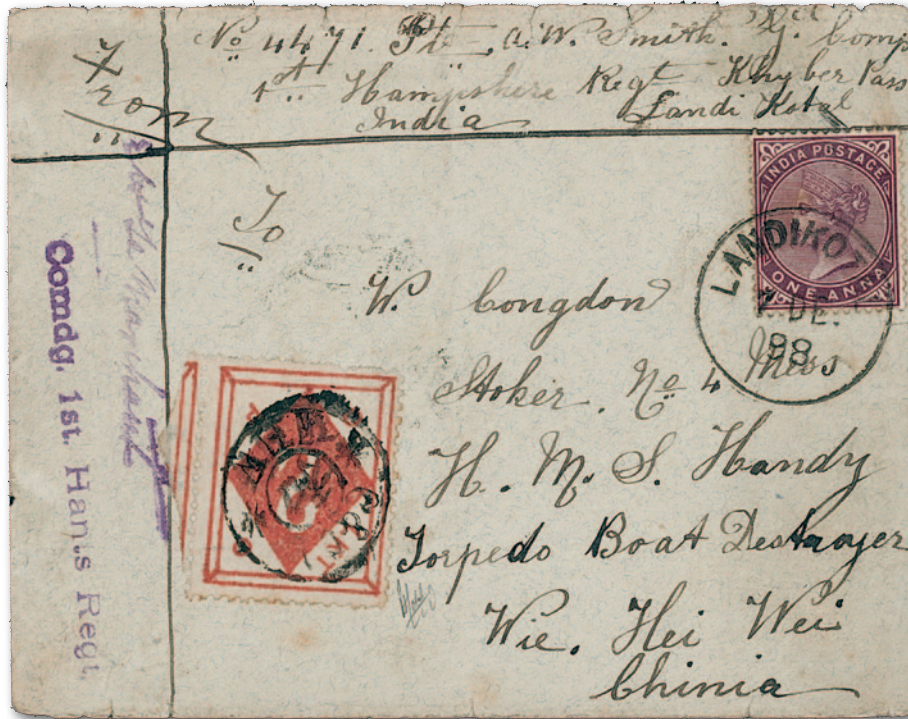 From
No 4471. Pte A. W. Smith. G. Comp
1st Hampshire Regt Khyber Pass
India Landi Kotal
To
W. Congdon
Stoker. No 4 Mess
H. M. S. Handy
Torpedo Boat Destroyer
Wie. Hei Wei
Chinia
Comdg. 1st. Han.s Regt.
INDIA POSTAGE
ONE ANNA
LANDIKO
DE.
98